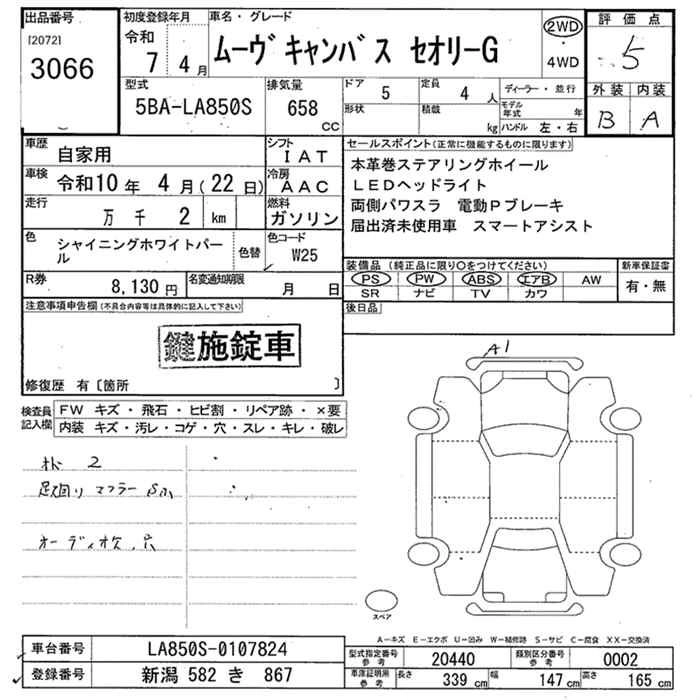 出品番号 初度登録年月 車名・グレード 評価点
[2072] 令和 2WD
3066 7 4月 ムーヴキャンバス セオリーG ・ 5
4WD
型式 排気量 ドア 定員 ディーラー・並行 外装 内装
5BA-LA850S 658 cc 5 4人 モデル年式 年 B A
形状 積載 kg ハンドル 左・右
車歴 自家用 シフト IAT セールスポイント(正常に機能するものに限ります)
車検 令和10年 4月(22日) 冷房 AAC 本革巻ステアリングホイール
LEDヘッドライト
走行 万 千 2 km 燃料 ガソリン 両側パワスラ 電動Pブレーキ
届出済未使用車 スマートアシスト
色 シャイニングホワイトパール 色替 色コード W25
装備品(純正品に限り○をつけてください) 新車保証書
R券 8,130円 名変通知期限 月 日 PS PW ABS エアB AW 有・無
SR ナビ TV カワ
注意事項申告欄(不具合内容等は具体的に記入して下さい) 後日品
鍵施錠車
A1
修復歴 有〔箇所 〕
検査員記入欄 FW キズ・飛石・ヒビ割・リペア跡・×要
内装 キズ・汚レ・コゲ・穴・スレ・キレ・破レ
2
足廻り マフラー S
オーディオ欠.穴
スペア
A-キズ E-エクボ U-凹み W-補修跡 S-サビ C-腐食 XX-交換済
車台番号 LA850S-0107824 型式指定番号参考 20440 類別区分番号参考 0002
登録番号 新潟 582 き 867 車庫証明用参考 長さ 339cm 幅 147cm 高さ 165cm